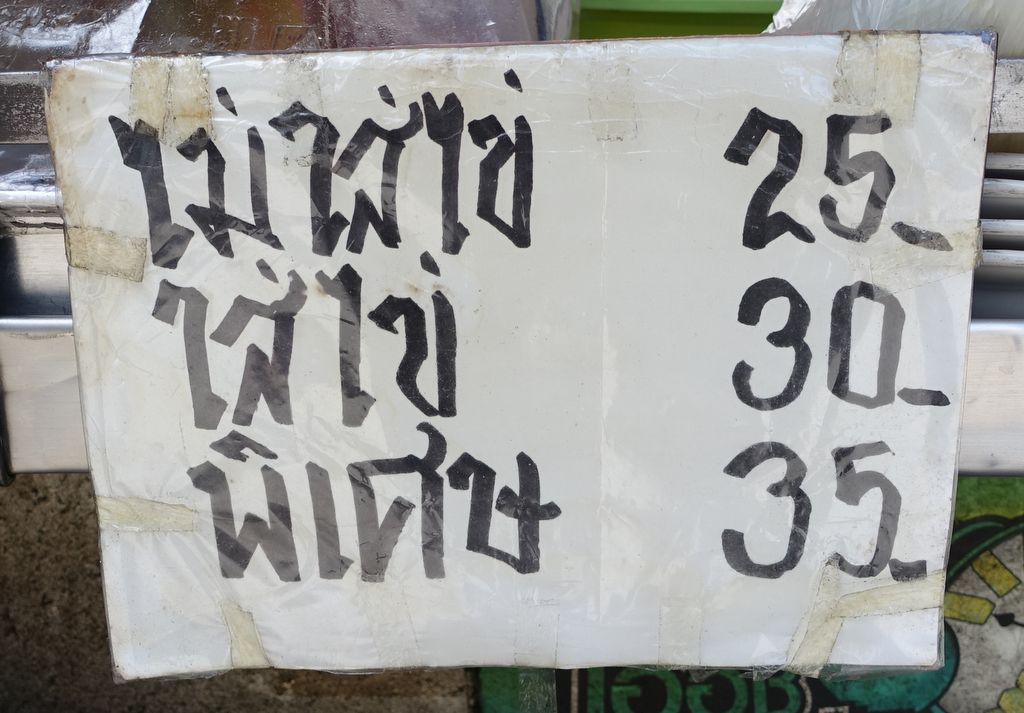 ไม่ใส่ไข่ 25_
ใส่ไข่ 30_
พิเศษ 35_